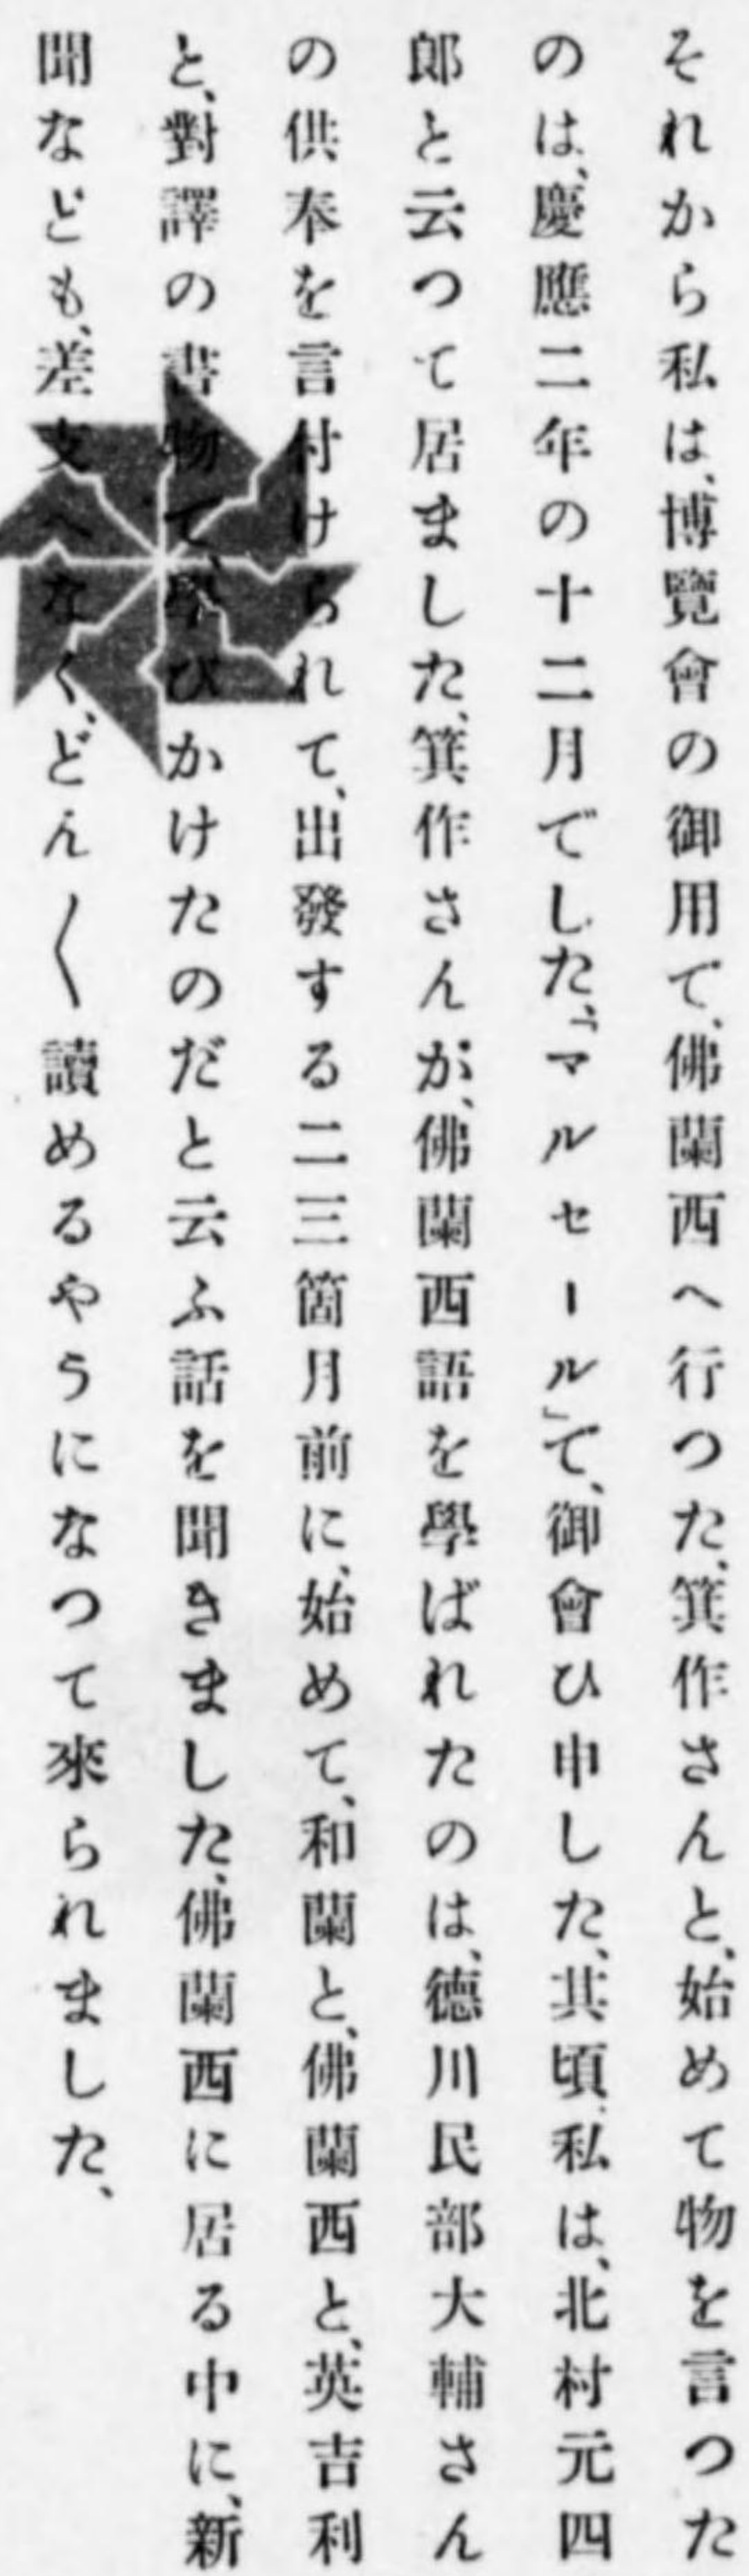 それから私は、博覽會の御用で、佛蘭西へ行つた、箕作さんと、始めて物を言つた
のは、慶應二年の十二月でした、「マルセール」で、御會ひ申した、其頃私は、北村元四
郎と云つて居ました、箕作さんが、佛蘭西語を學ばれたのは、德川民部大輔さん
の供奉を言付けられて、出發する二三箇月前に、始めて、和蘭と、佛蘭西と、英吉利
と、對譯の書物で、學びかけたのだと云ふ話を聞きました、佛蘭西に居る中に、新
聞なども、差支へなく、どん〱讀めるやうになつて來られました、